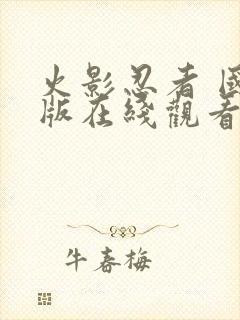 火影忍者 國
版在綫觀看
牛春梅